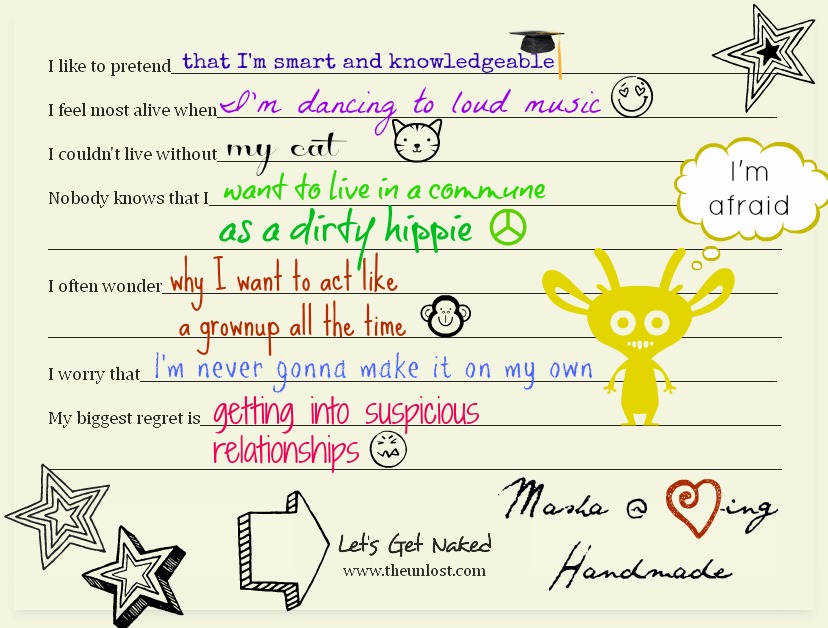 I like to pretend that I'm smart and knowledgeable
I feel most alive when I'm dancing to loud music
I couldn't live without my cat
Nobody knows that I want to live in a commune
as a dirty hippie
I'm
afraid
I often wonder why I want to act like
a grownup all the time
I worry that I'm never gonna make it on my own
My biggest regret is getting into suspicious
relationships
Masha @ -ing
Handmade
Let's Get Naked
www.theunlost.com